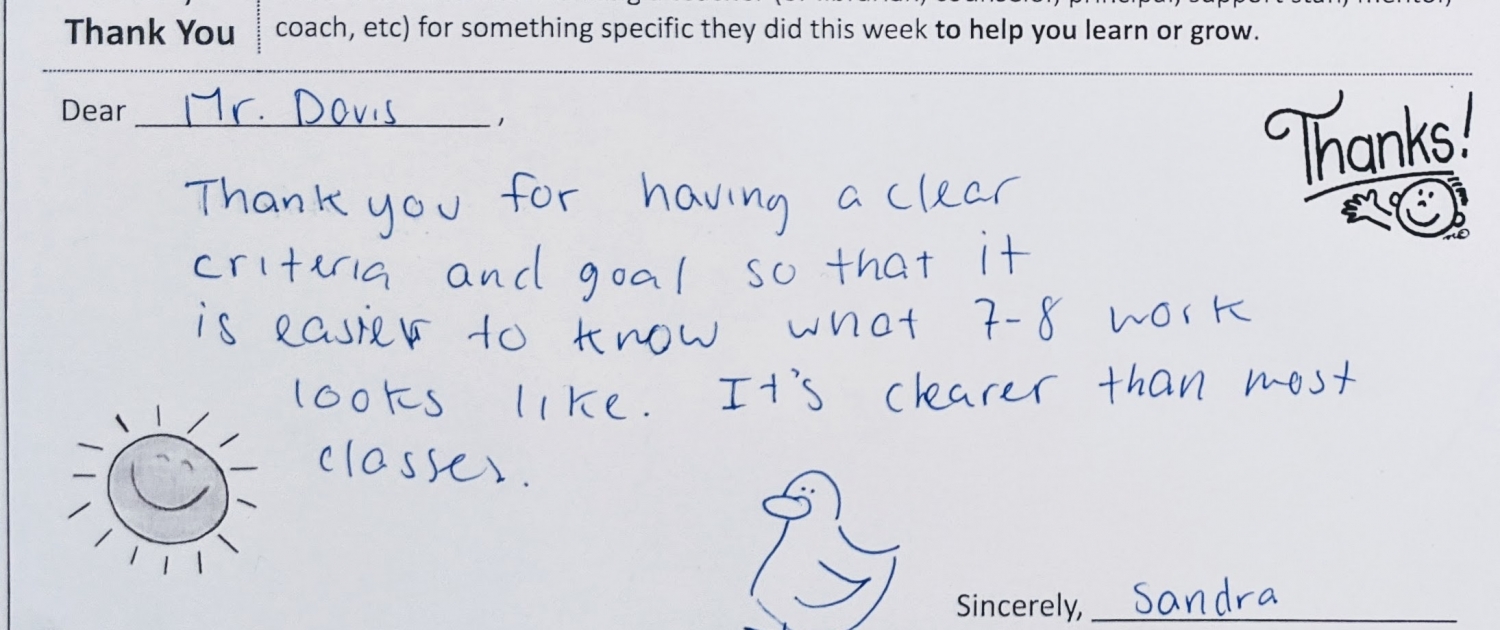 Thank You
coach, etc) for something specific they did this week to help you learn or grow.
Dear Mr. Davis,
Thanks!
Thank you for having a clear
criteria and goal so that it
is easier to know what 7-8 work
looks like. It's clearer than most
classes.
Sincerely, Sandra